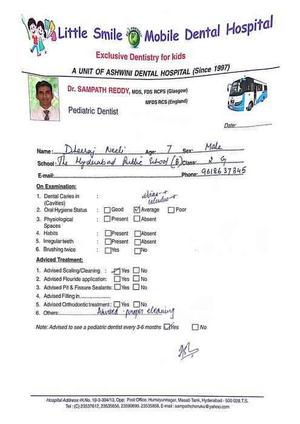 Little Smile Mobile Dental Hospital
Exclusive Dentistry for kids
A UNIT OF ASHWINI DENTAL HOSPITAL (Since 1997)
Dr. SAMPATH REDDY, MDS, FDS RCPS (Glasgow)
MFDS RCS (England)
Pediatric Dentist
Date:
Name: Dheeraj Neeli Age: 7 Sex: Male
School: The Hyderabad Public School (B) Class: 2 G
E-mail: Phone: 9618637345
On Examination:
1. Dental Caries in (Cavities)
2. Oral Hygiene Status : Good Average Poor
3. Physiological Spaces : Present Absent
4. Habits : Present Absent
5. Irregular teeth : Present Absent
6. Brushing twice : Yes No
Adviced Treatment:
1. Advised Scaling/Cleaning : Yes No
2. Advised Flouride application: Yes No
3. Advised Pit & Fissure Sealants: Yes No
4. Advised Filling in
5. Advised Orthodontic treatment: Yes No
6. Others: Advised proper cleaning
Note: Advised to see a pediatric dentist every 3-6 months Yes No
Hospital Address: H.No. 10-3-304/13, Opp: Post Office, Humayunnagar, Masab Tank, Hyderabad - 500 028.T.S.